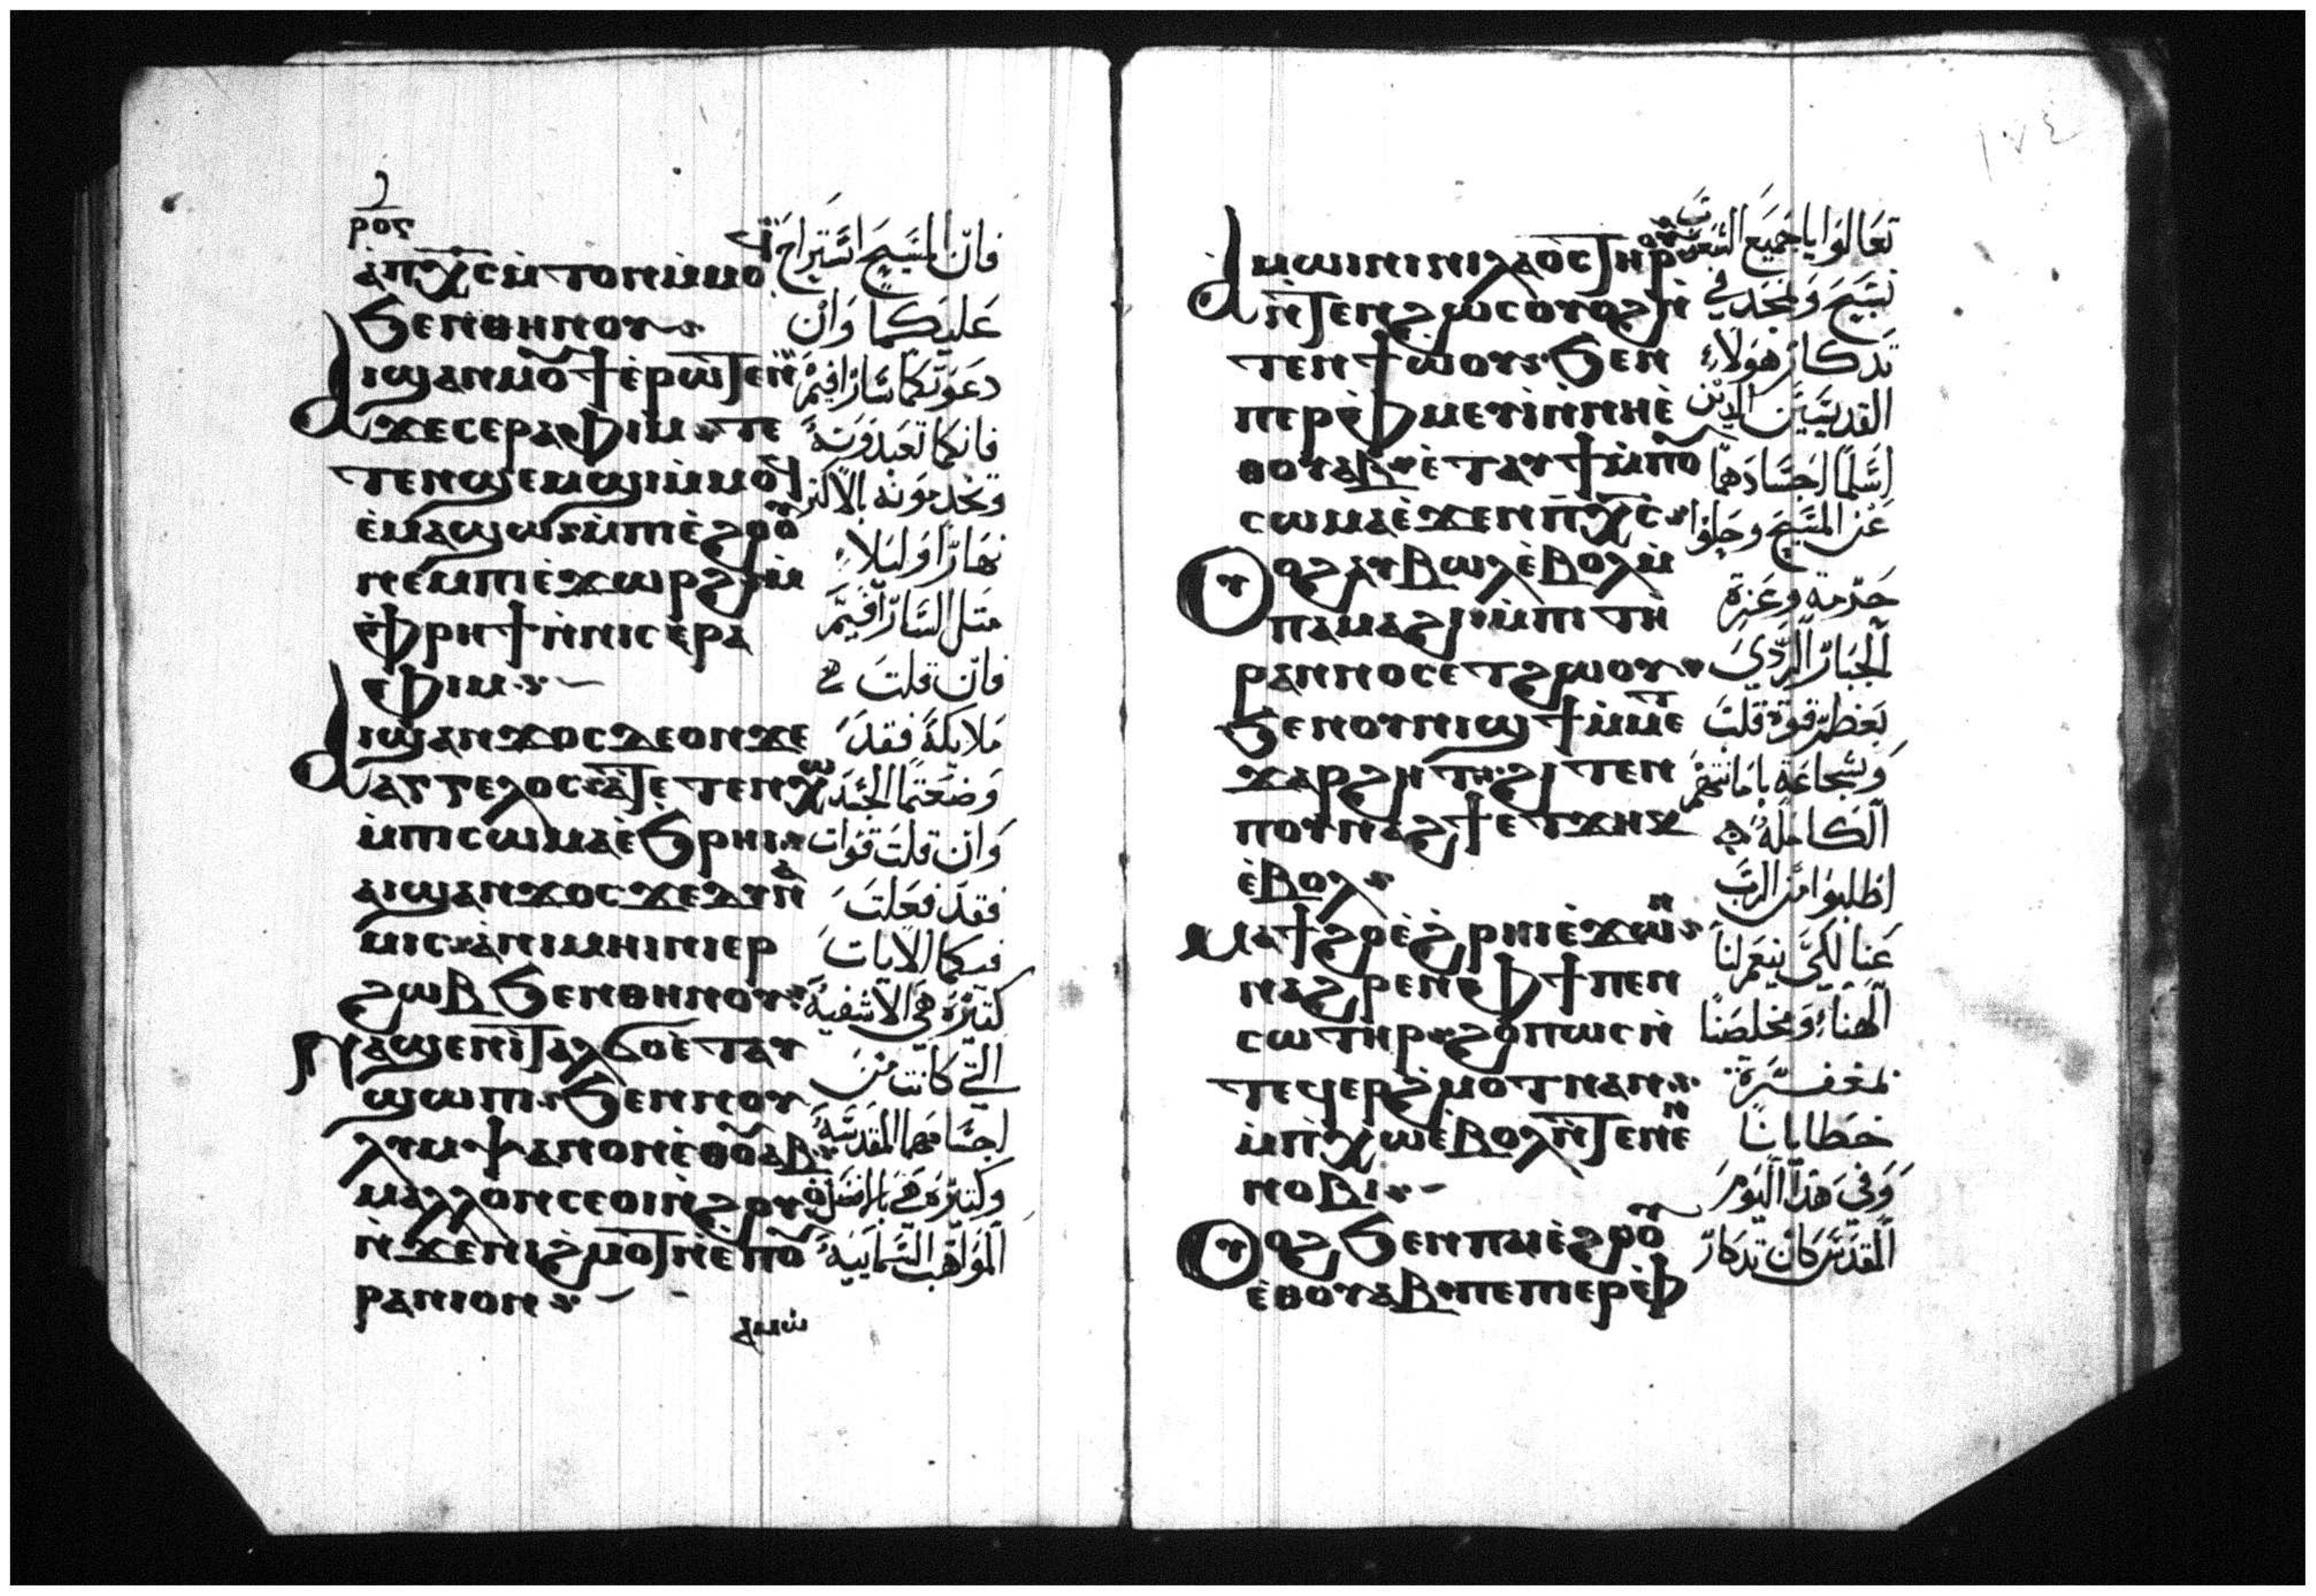 ⲣⲟⲋ
ⲁⲡⲭ̅ⲥ̅ ⲙ̀ⲧⲟⲛ ⲙ̀ⲙⲟϥ
ϧⲉⲛ ⲑⲏⲛⲟⲩ
ⲁⲓϣⲁⲛⲙⲟⲩϯ ⲉ̀ⲣⲱⲧⲉⲛ
ϫⲉ ⲥⲉⲣⲁⲫⲓⲙ ⲧⲉ
ⲧⲉⲛϣⲉⲙϣⲓ ⲙ̀ⲙⲟϥ
ⲉ̀ⲙⲁϣⲱ ⲙ̀ⲡⲓⲉ̀ϩⲟⲟⲩ
ⲛⲉⲙ ⲡⲓⲉ̀ϫⲱⲣϩ ⲙ̀
ⲫⲣⲏϯ ⲛ̀ⲛⲓⲥⲉⲣⲁ
ⲫⲓⲙ
ⲁⲓϣⲁⲛϫⲟⲥ ⲇⲉ ⲟⲛ ϫⲉ
ⲁⲅⲅⲉⲗⲟⲥ ⲁ̀ⲧⲉⲧⲉⲛⲭⲱ
ⲙ̀ⲡⲓⲥⲱⲙⲁ ⲉ̀ϧⲣⲏⲓ
ⲁⲓϣⲁⲛϫⲟⲥ ϫⲉ ⲇⲩⲛⲁ
ⲙⲓⲥ ⲁ̀ ⲛⲓⲙⲏⲓⲛⲓ ⲉⲣ
ϩⲱⲃ ϧⲉⲛ ⲑⲏⲛⲟⲩ
ⲛⲁϣⲉ ⲛⲓⲧⲁⲗϭⲟ ⲉ̀ⲧⲁⲩ
ϣⲱⲡⲓ ϧⲉⲛ ⲛⲟⲩ
ⲗⲩⲙⲯⲁⲛⲟⲛ ⲉⲑⲟⲩⲁⲃ
ⲙⲁⲗⲗⲟⲛ ⲥⲉⲟⲓ ⲛ̀ϩⲟⲩⲟ
ⲛ̀ϫⲉ ⲛⲓϩⲙⲟⲧ ⲛ̀ⲉⲡⲟⲩ
ⲣⲁⲛⲓⲟⲛ
ⲁⲙⲱ
فان المسيح استراح
عليكما وان
دعوتكما ساراфيم
فانكما تعبدونه
وتخدمونه بالاكثر
نهارا وليلا
مثل السارافيم
فان قلت
ملايكة فقد
وضعتما الجسد
وان قلت قوات
فقد فعلت
فيكما الايات
كثيرة هي الاشفية
التي كانت من
اجسامهما المقدسة
وكثيرة هي بالافضل
المواهب السمايية
١٧٤
ⲁⲙⲱⲓⲛⲓ ⲛⲓⲗⲁⲟⲥ ⲧⲏⲣⲟⲩ
ⲛ̀ⲧⲉⲛϩⲱⲥ ⲟⲩⲟϩ ⲛ̀
ⲧⲉⲛϯⲱ̀ⲟⲩ ϧⲉⲛ
ⲡⲉⲣⲫⲙⲉⲩⲓ ⲛ̀ⲛⲏⲉ̀
ⲑⲟⲩⲁⲃ ⲉ̀ⲧⲁⲩϯ ⲙ̀ⲡⲟⲩ
ⲥⲱⲙⲁ ⲉ̀ϫⲉⲛ ⲡⲭ̅ⲥ̅
ⲟⲩⲟϩ ⲁⲩⲃⲱⲗ ⲉ̀ⲃⲟⲗ ⲙ̀
ⲡⲁⲙⲁϩⲓ ⲙ̀ⲡⲓⲧⲏ
ⲣⲁⲛⲛⲟⲥ ⲉⲧϩⲱⲟⲩ
ϧⲉⲛ ⲟⲩⲛⲓϣϯ ⲙ̀ⲙⲉⲧ
ϫⲁⲣϩⲏⲧ ϩⲓⲧⲉⲛ
ⲡⲟⲩⲛⲁϩϯ ⲉⲧϫⲏⲕ
ⲉ̀ⲃⲟⲗ
ⲙⲁϯϩⲟ ⲉ̀ϩⲣⲏⲓ ⲉ̀ϫⲱⲛ
ⲛⲁϩⲣⲉⲛ ⲫϯ ⲡⲉⲛ
ⲥⲱⲧⲏⲣ ϩⲟⲡⲱⲥ ⲛ̀
ⲧⲉϥⲉⲣϩⲙⲟⲧ ⲛⲁⲛ
ⲙ̀ⲡⲭⲱ ⲉ̀ⲃⲟⲗ ⲛ̀ⲧⲉ ⲛⲉⲛ
ⲛⲟⲃⲓ
ⲟⲩⲟϩ ϧⲉⲛ ⲡⲁⲓⲉ̀ϩⲟⲟⲩ
ⲉ̀ⲑⲟⲩⲁⲃ ⲡⲉ ⲡⲓⲉⲣⲫ
تعالوا يا جميع الشعوب
نسبح ونمجد في
تدكار هولاء
القديسين الذين
اسلما اجسادهما
عن المسيح وحلوا
وعزة
الجبار الردي
بعظم قوة قلب
وشجاعة بامانتهم
الكاملة
اطلبوا من الرب
عنا لكي ينعم لنا
الهنا ومخلصنا
بمغفرة
خطايانا
وفي هذا اليوم
المقدس كان تدكار